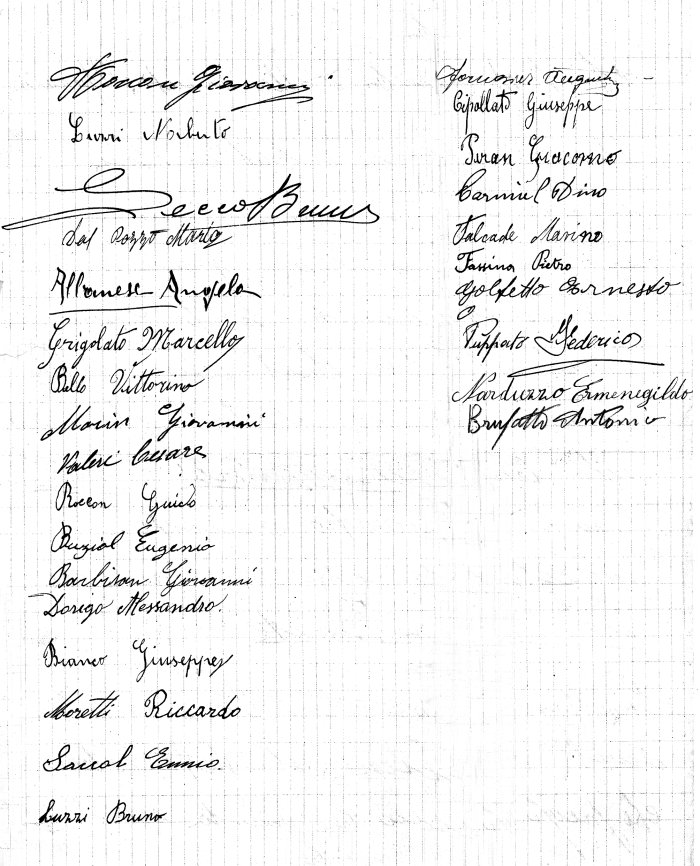 Giovanni
Luzzi Norberto
Secco Bruno
Dal Pozzo Mario
Albanese Angelo
Grigolato Marcello
Bello Vittorino
Morin Giovanni
Valeri Cesare
Roccon Guido
Buziol Eugenio
Barbisan Giovanni
Dorigo Alessandro.
Bianco Giuseppe
Moretti Riccardo
Saccol Ennio.
Luzzi Bruno
Cipollato Giuseppe
Peran Giacomo
Carniel Dino
Falcade Marino
Fassina Pietro
Golfetto Ernesto
Puppato Federico
Narduzzo Ermenegildo
Brufatto Antonio